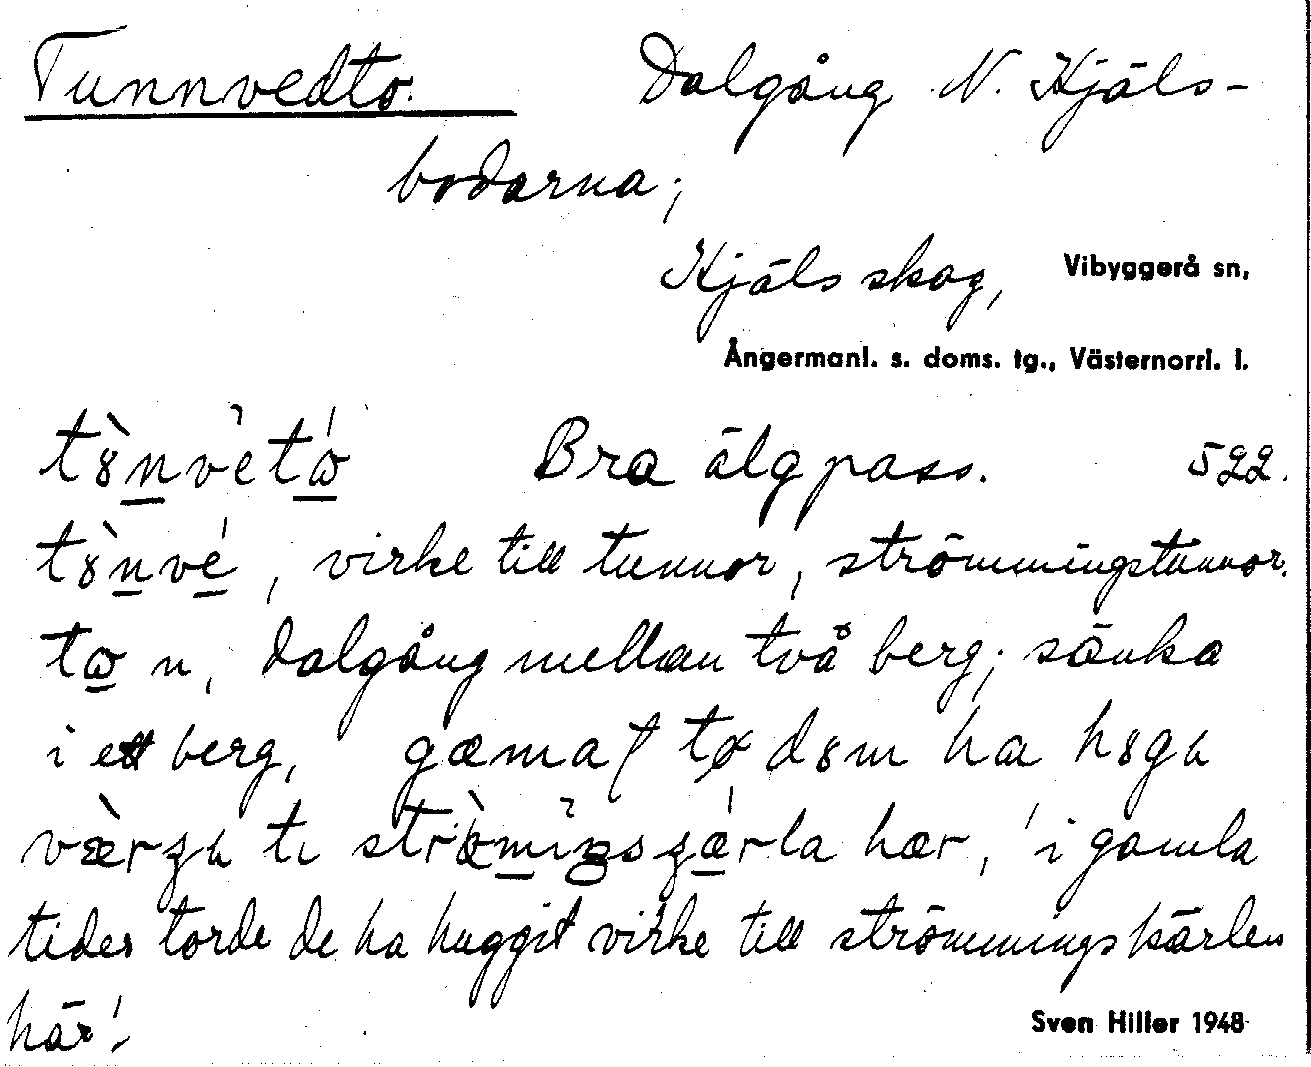 Tunnvedto. Dalgång N. Kjäls-
bodarna;
Kjäls skog, Vibyggerå sn,
Ångermanl. s. doms. tg., Västernorrl. l.
Bra älgpass. 522.
virke till tunnor, strömmingstunnor.
n, dalgång mellan två berg; sänka
i ett berg, ha
ti hær, 'i gamla
tider torde de ha huggit virke till strömmingskärlen
här'.
Sven Hiller 1948